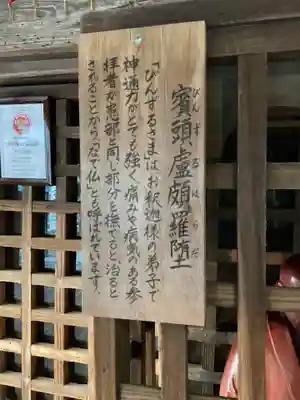 賓頭盧頗羅堕
びんずるはらだ
「びんずるさま」は、お釈迦様の弟子で
神通力がとても強く、痛みや病気のある参
拝者が患部と同じ部分を撫でると治ると
されることから「なで仏」とも呼ばれています。